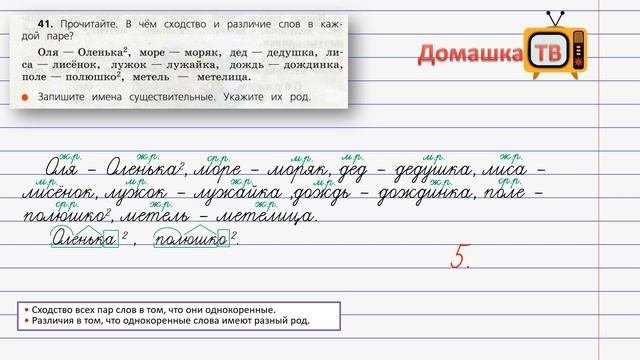 41. Прочитайте. В чём сходство и различие слов в каж-
дой паре?
Оля — Оленька², море — моряк, дед — дедушка, ли-
са — лисёнок, лужок — лужайка, дождь — дождинка,
поле — полюшко², метель — метелица.
• Запишите имена существительные. Укажите их род.
Домашка ТВ
ж.р. ж.р. ср.р. м.р. м.р. м.р. ж.р.
Оля – Оленька², море – моряк, дед – дедушка, лиса –
м.р. м.р. ж.р. м.р. ж.р. ср.р.
лисёнок, лужок – лужайка ,дождь – дождинка, поле –
ср.р. ж.р. ж.р.
полюшко², метель – метелица.
Оленька ², полюшко ².
5.
• Сходство всех пар слов в том, что они однокоренные.
• Различия в том, что однокоренные слова имеют разный род.